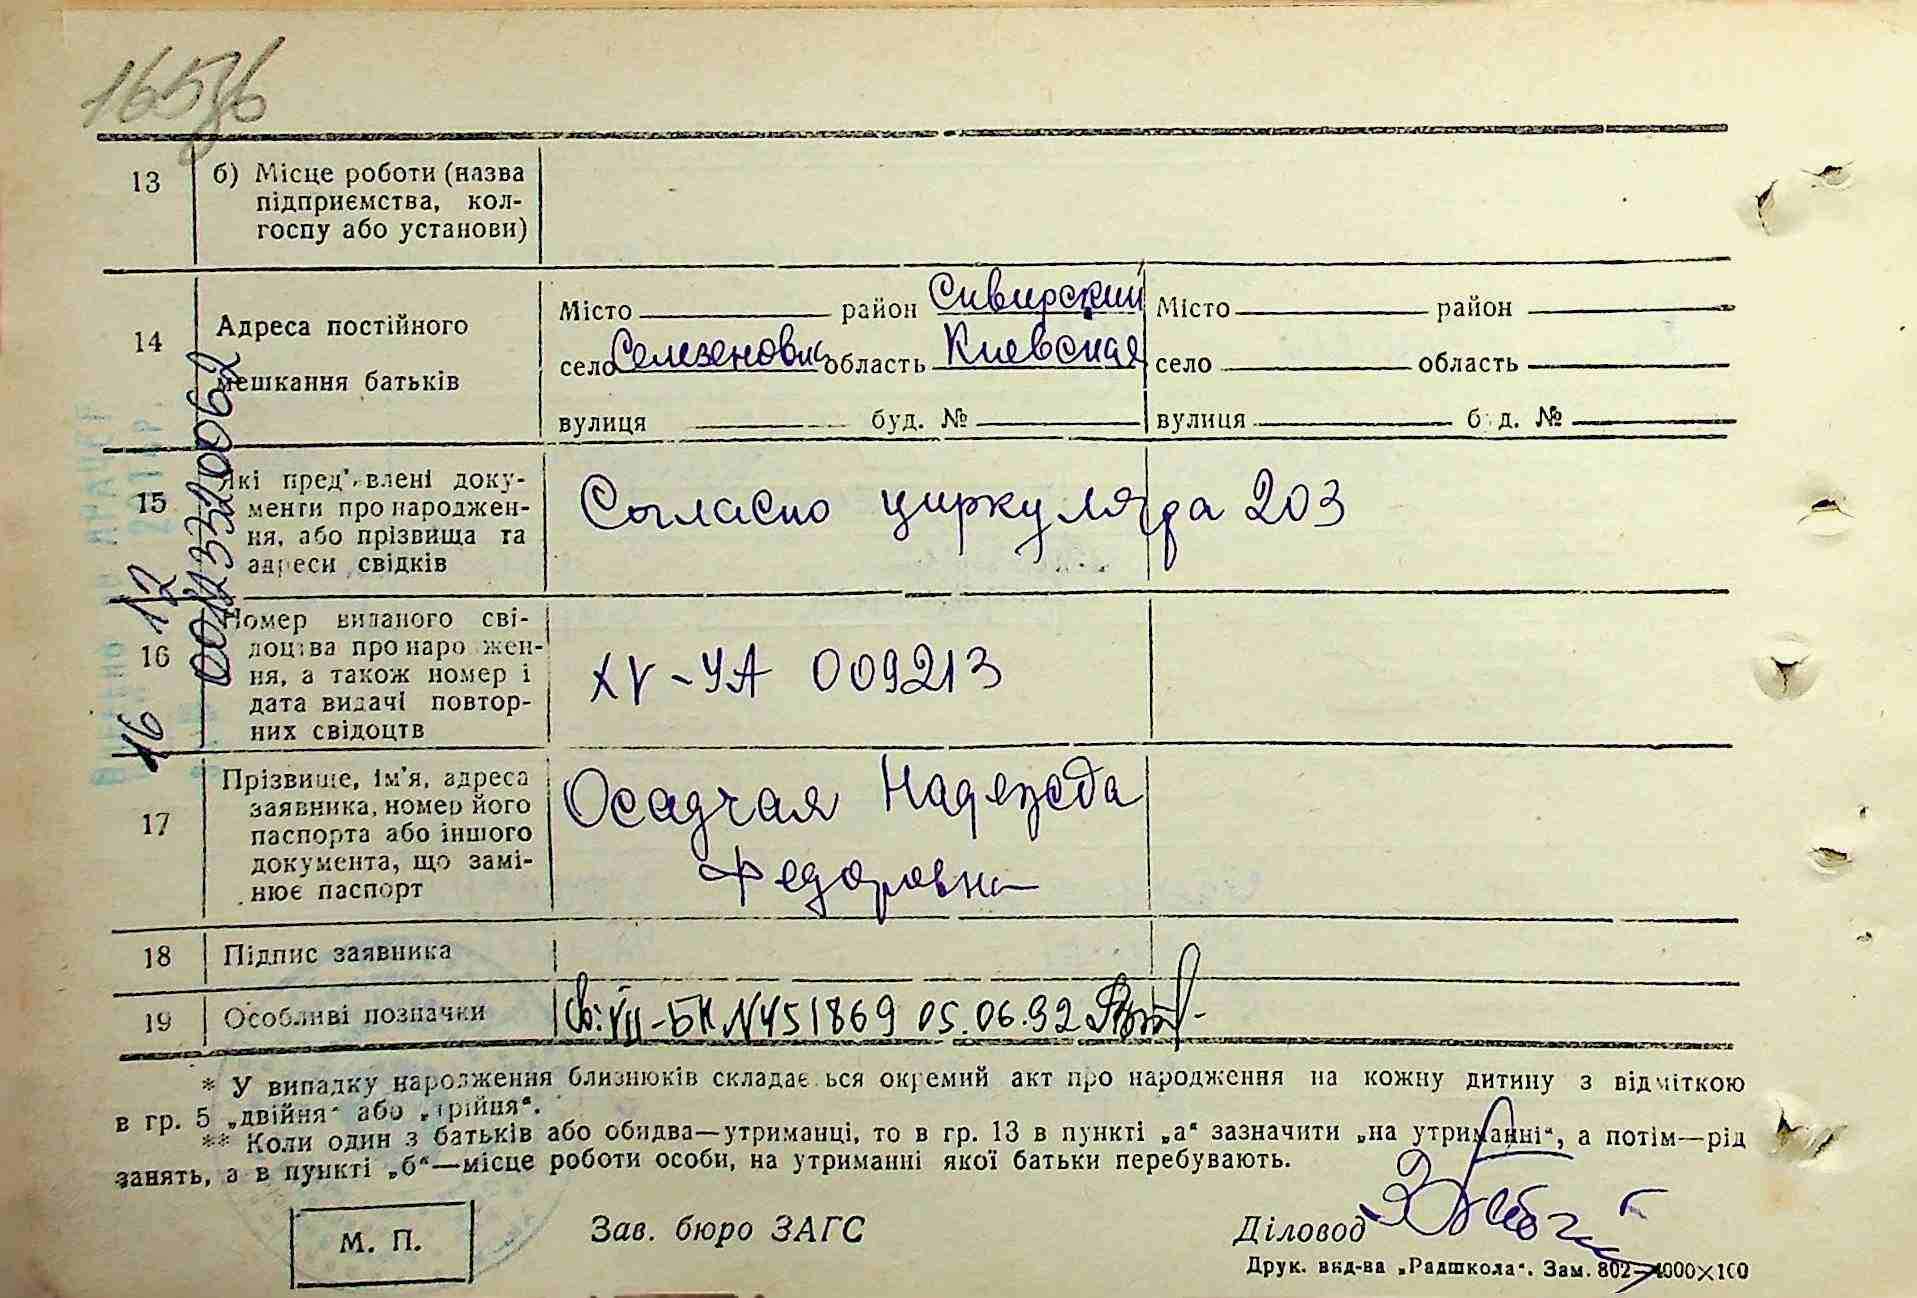 13
б) Місце роботи (назва
підприємства, кол-
госпу або установи)
14
Адреса постійного
мешкання батьків
Місто район Сивирский
село Селезеновка область Киевская
вулиця буд. №
Місто район
село область
вулиця буд. №
15
Які пред'явлені доку-
менти про народжен-
ня, або прізвища та
адреси свідків
Согласно циркуляра 203
16
Номер виданого сві-
доцтва про народжен-
ня, а також номер і
дата видачі повтор-
них свідоцтв
XV-УА 009213
17
Прізвище, ім'я, адреса
заявника, номер його
паспорта або іншого
документа, що замі-
нює паспорт
Осадчая Надежда
Федоровна
18
Підпис заявника
19
Особливі позначки
Св: VII-БК №451869 05.06.92
* У випадку народження близнюків складається окремий акт про народження на кожну дитину з відміткою
в гр. 5 „двійня“ або „трійня“.
** Коли один з батьків або обидва—утриманці, то в гр. 13 в пункті „а“ зазначити „на утриманні“, а потім—рід
занять, а в пункті „б“—місце роботи особи, на утриманні якої батьки перебувають.
М. П.
Зав. бюро ЗАГС
Діловод
Друк. вид-ва „Радшкола“. Зам. 802—4000×100
16 12